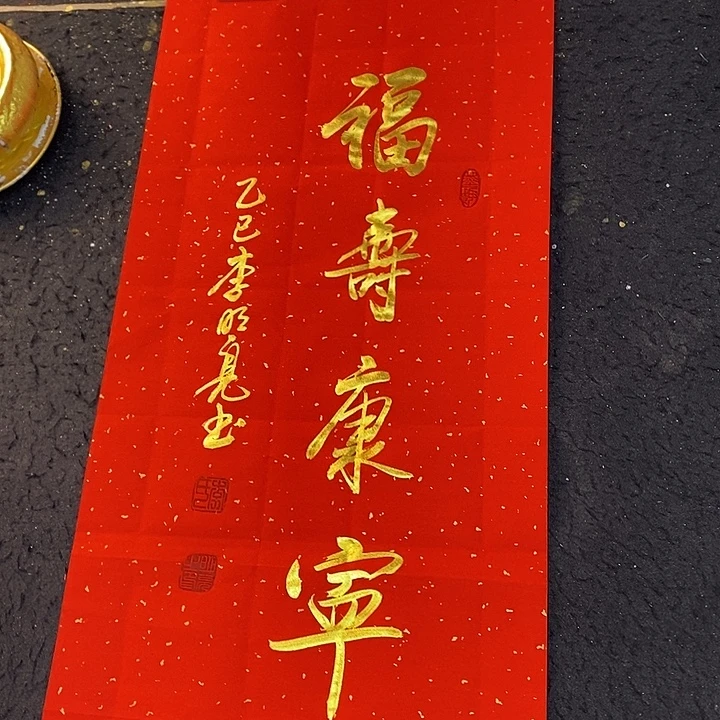 福壽康寧
乙巳李明亮书